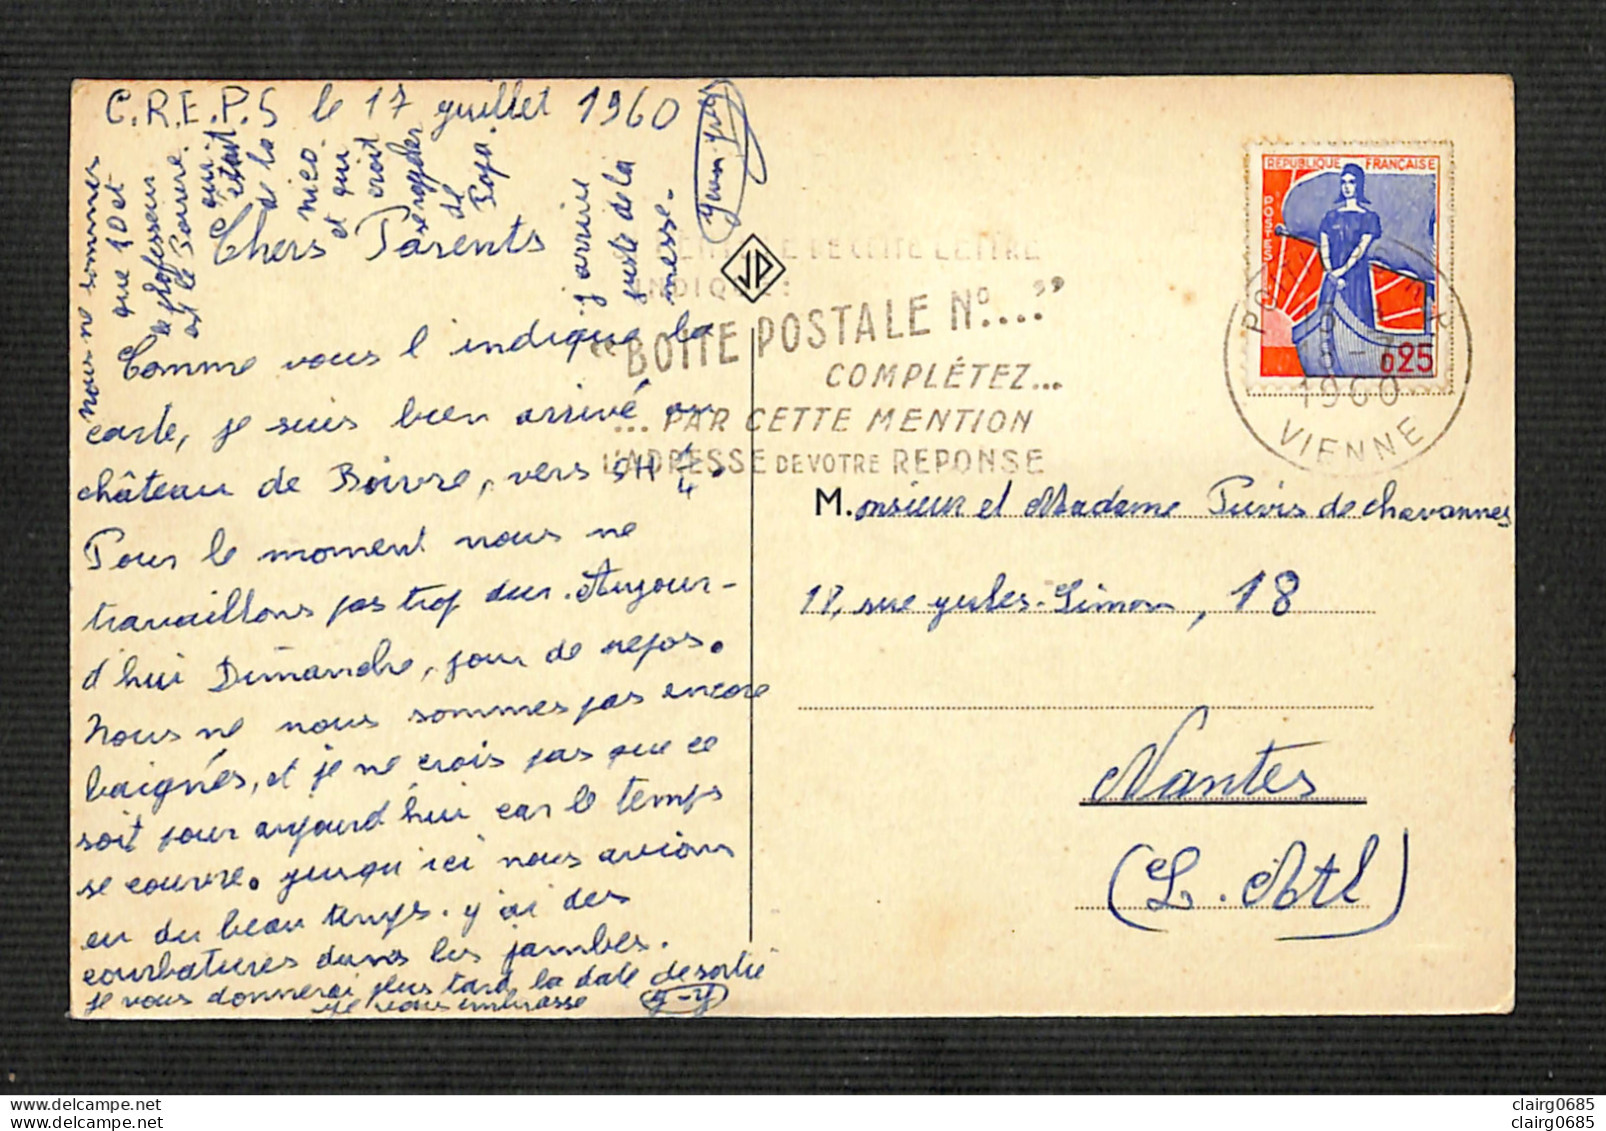 C.R.E.P.S le 17 juillet 1960
Chers Parents
Comme vous l'indique la
carte, je suis bien arrivé au
château de Boivre, vers 9H 1/4.
Pour le moment nous ne
travaillons pas trop dur. Aujour-
d'hui Dimanche, jour de repos.
Nous ne nous sommes pas encore
baignés, et je ne crois pas que ce
soit pour aujourd'hui car le temps
se couvre. jusqu'ici nous avions
eu du beau temps. j'ai des
courbatures dans les jambes.
je vous donnerai plus tard la date de sortie
je vous embrasse
nous ne sommes
que 10 et
le professeur
est le
qui
était
de la
nico.
et qui
croit
de
j'arrive
juste de la
messe.
JP
DE CETTE LETTRE
INDIQUE:
"BOITE POSTALE No...."
COMPLÉTEZ...
... PAR CETTE MENTION
L'ADRESSE DE VOTRE REPONSE
REPUBLIQUE FRANÇAISE
POSTES
0,25
1960
VIENNE
M. onsieur et Madame Puvis de Chavannes
18, rue Jules-Simon, 18
Nantes
(L. Atl)
clairg0685
clairg0685
clairg0685
clairg0685